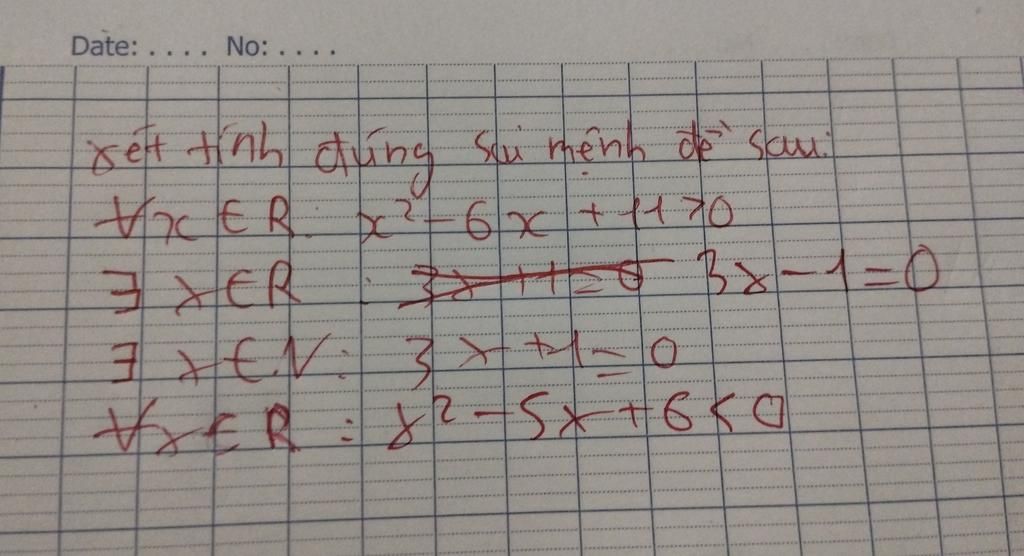 Date: .... No: ....
xét tính đúng sai mệnh đề sau:
∀x ∈ R: x² - 6x + 11 > 0
∃ x ∈ R : 3x + 1 = 0 3x - 1 = 0
∃ x ∈ N: 3x + 1 = 0
∀x ∈ R : x² - 5x + 6 < 0